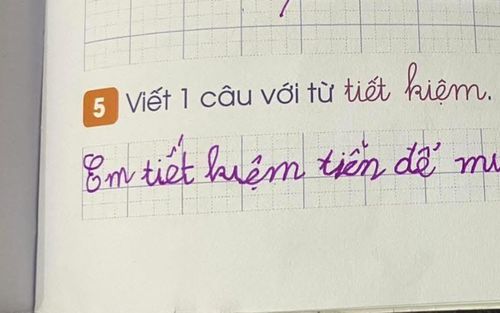 5 Viết 1 câu với từ tiết kiệm.
Em tiết kiệm tiền để